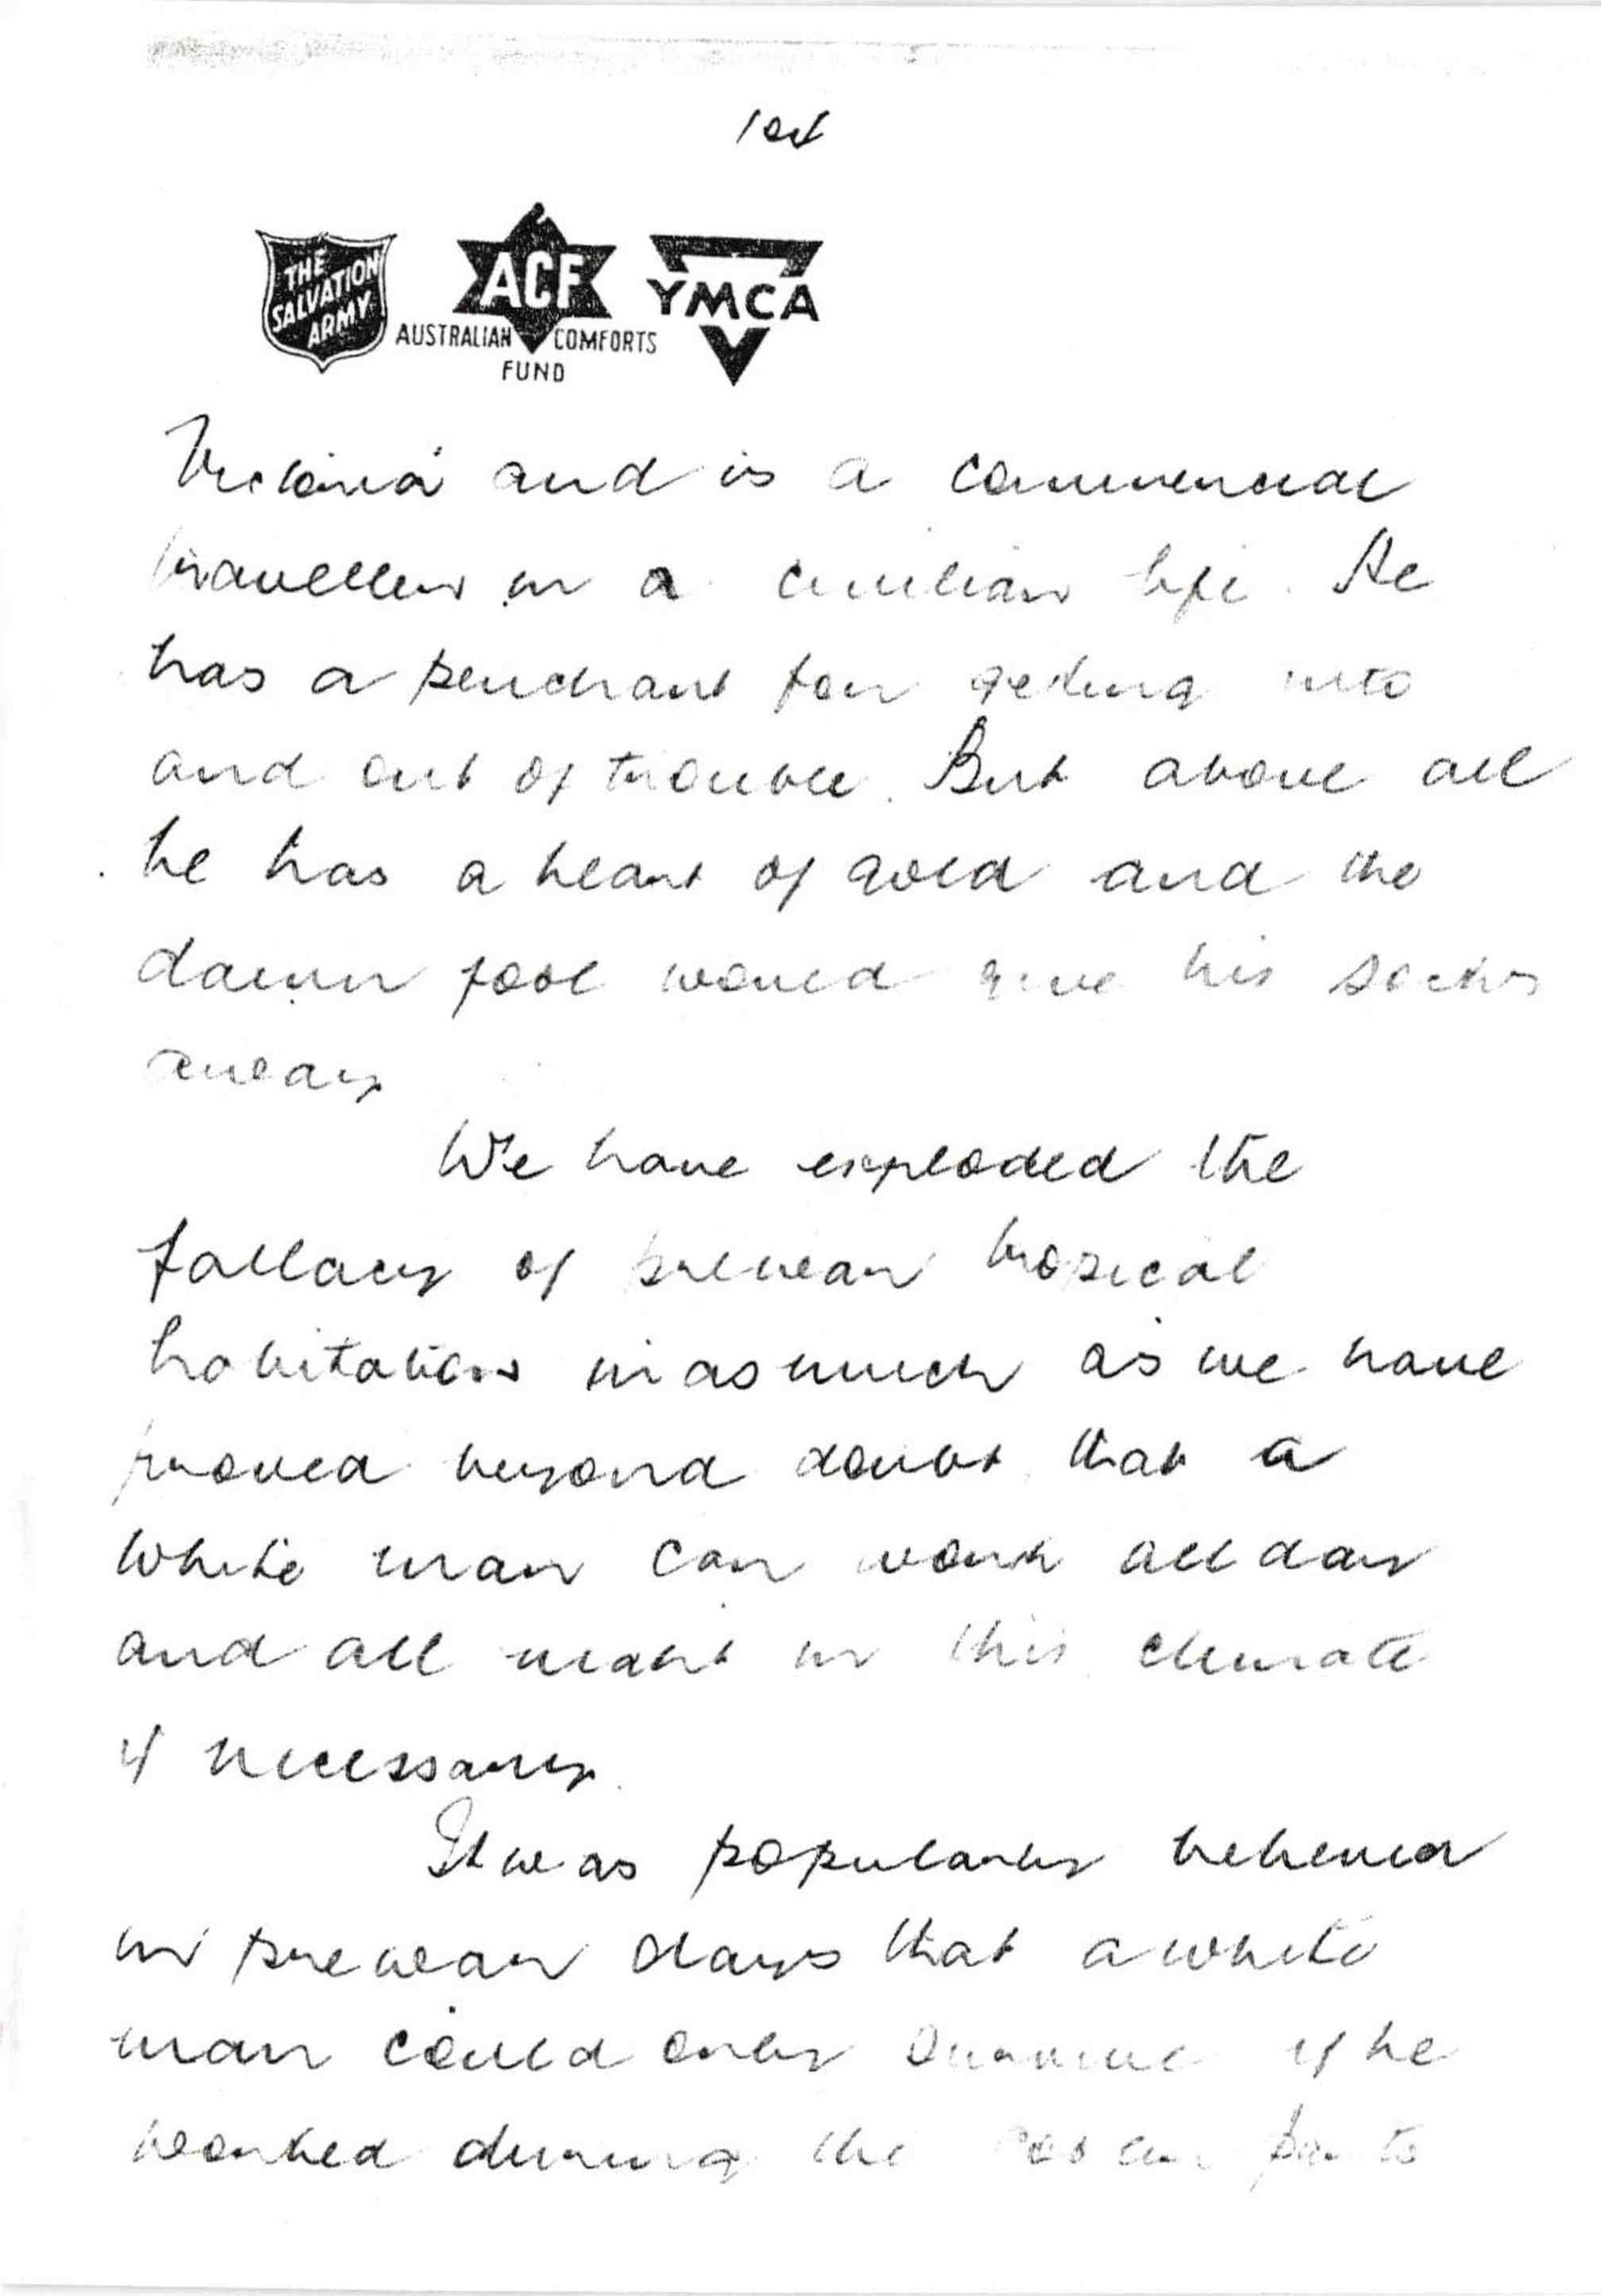 THE
SALVATION
ARMY
ACF
AUSTRALIAN COMFORTS
FUND
YMCA
Victoria and is a commercial
traveller in a civilian life. He
has a penchant for geting into
and out of trouble. But above all
he has a heart of gold and the
damn fool would give his socks
away
We have exploded the
fallacy of prewar tropical
habitation inasmuch as we have
proved beyond doubt that a
white man can work all day
and all night in this climate
if necessary.
It was popularly believed
in prewar days that a white
man could only survive if he
worked during the cooler parts